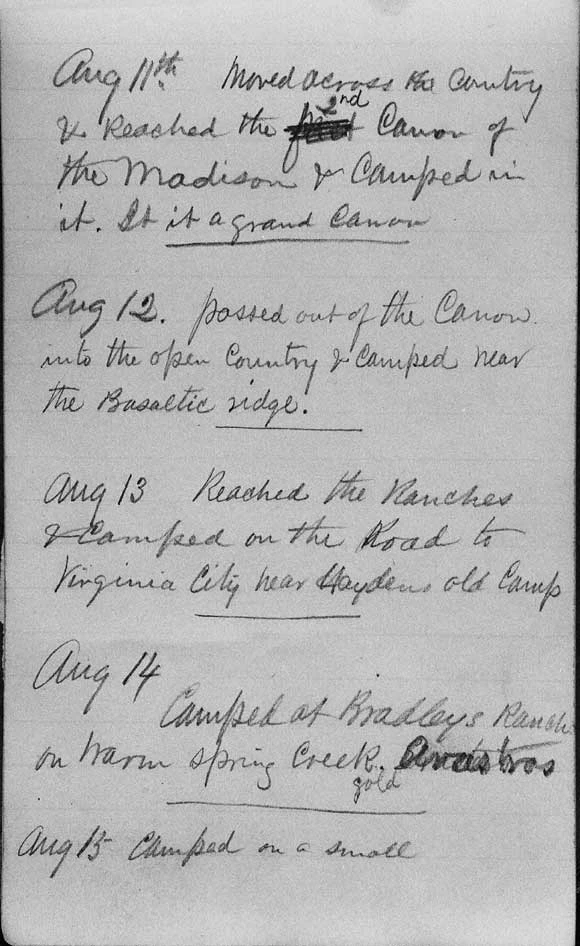 Aug 11th Moved across the Country
& Reached the 2nd Canon of
the Madison & Camped in
it. It it a grand Canon
Aug 12. passed out of the Canon
into the open Country & Camped near
the Basaltic ridge.
Aug 13 Reached the Ranches
& Camped on the Road to
Virginia City near Haydens old Camp
Aug 14
Camped at Bradleys Ranch
on Warm spring Creek.
gold
Aug 15 Camped on a small